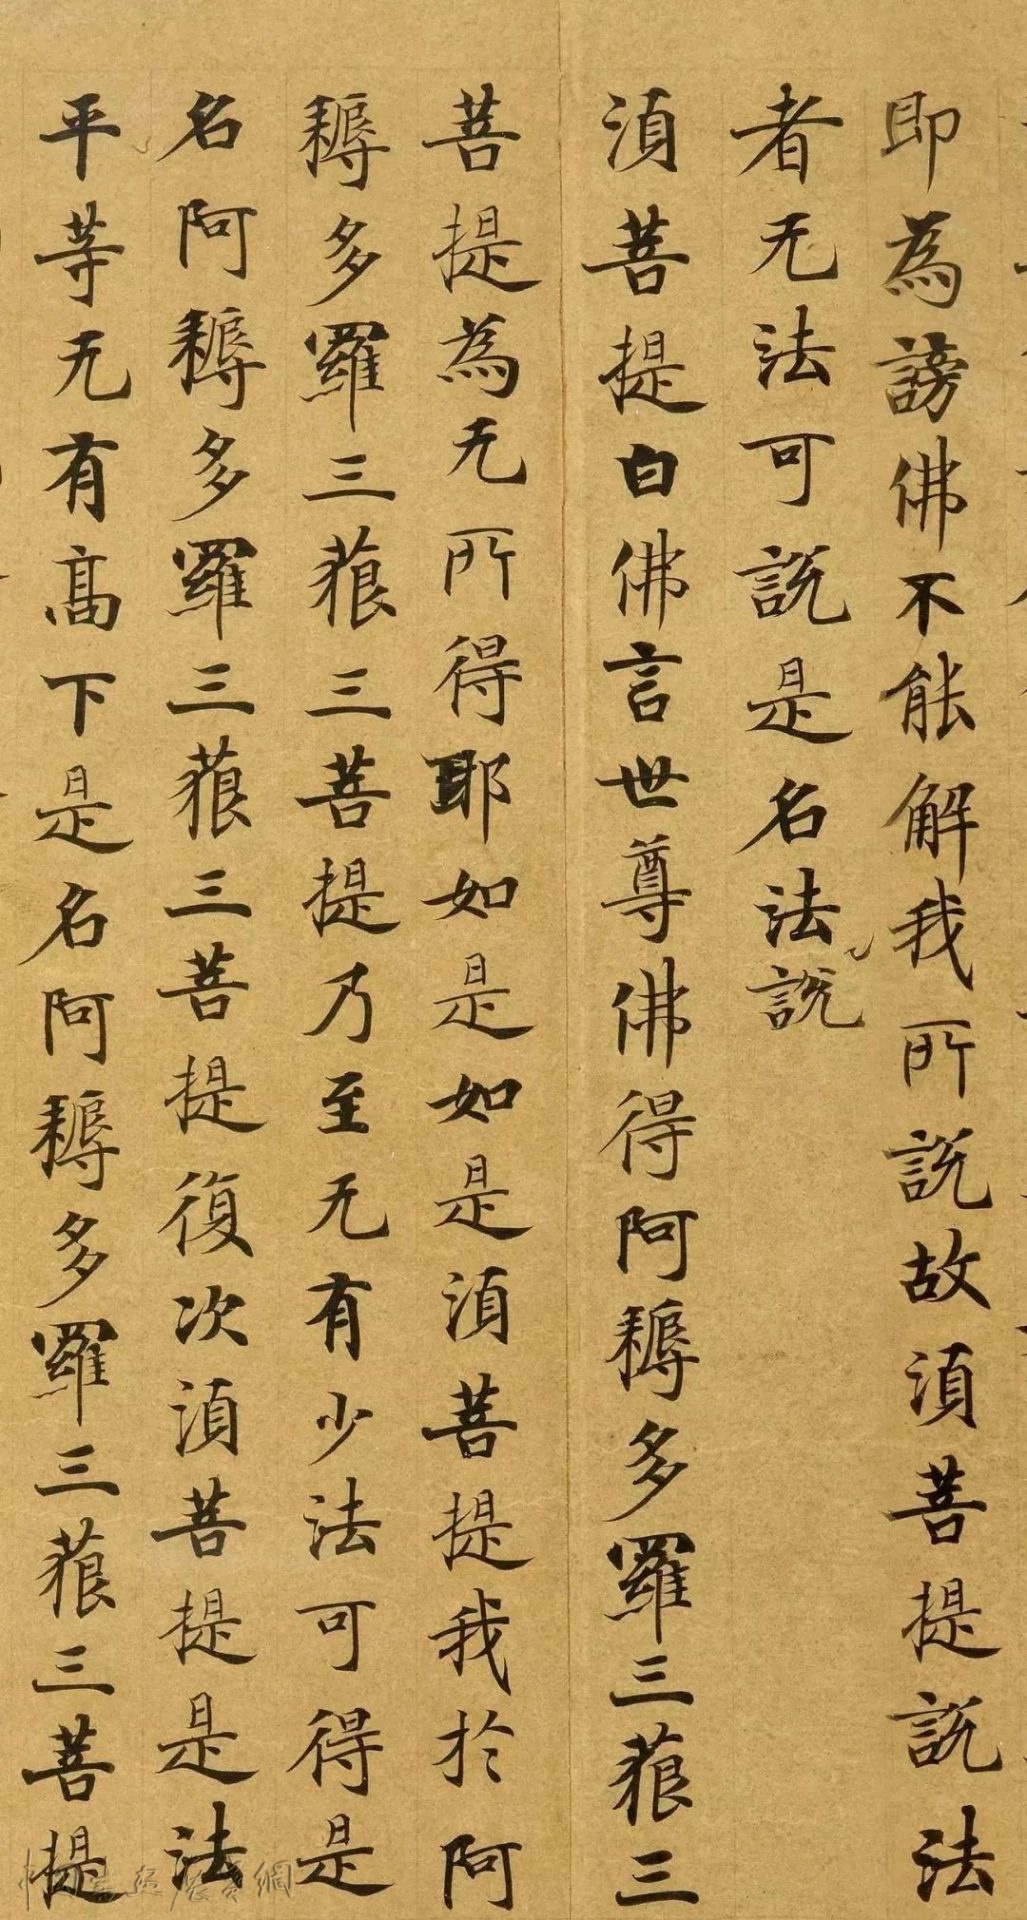 即為謗佛不能解我所說故湏菩提說法
者无法可說是名法說
湏菩提白佛言世尊佛得阿耨多羅三藐三
菩提為无所得耶如是如是湏菩提我於阿
耨多羅三藐三菩提乃至无有少法可得是
名阿耨多羅三藐三菩提復次湏菩提是法
平等无有髙下是名阿耨多羅三藐三菩提